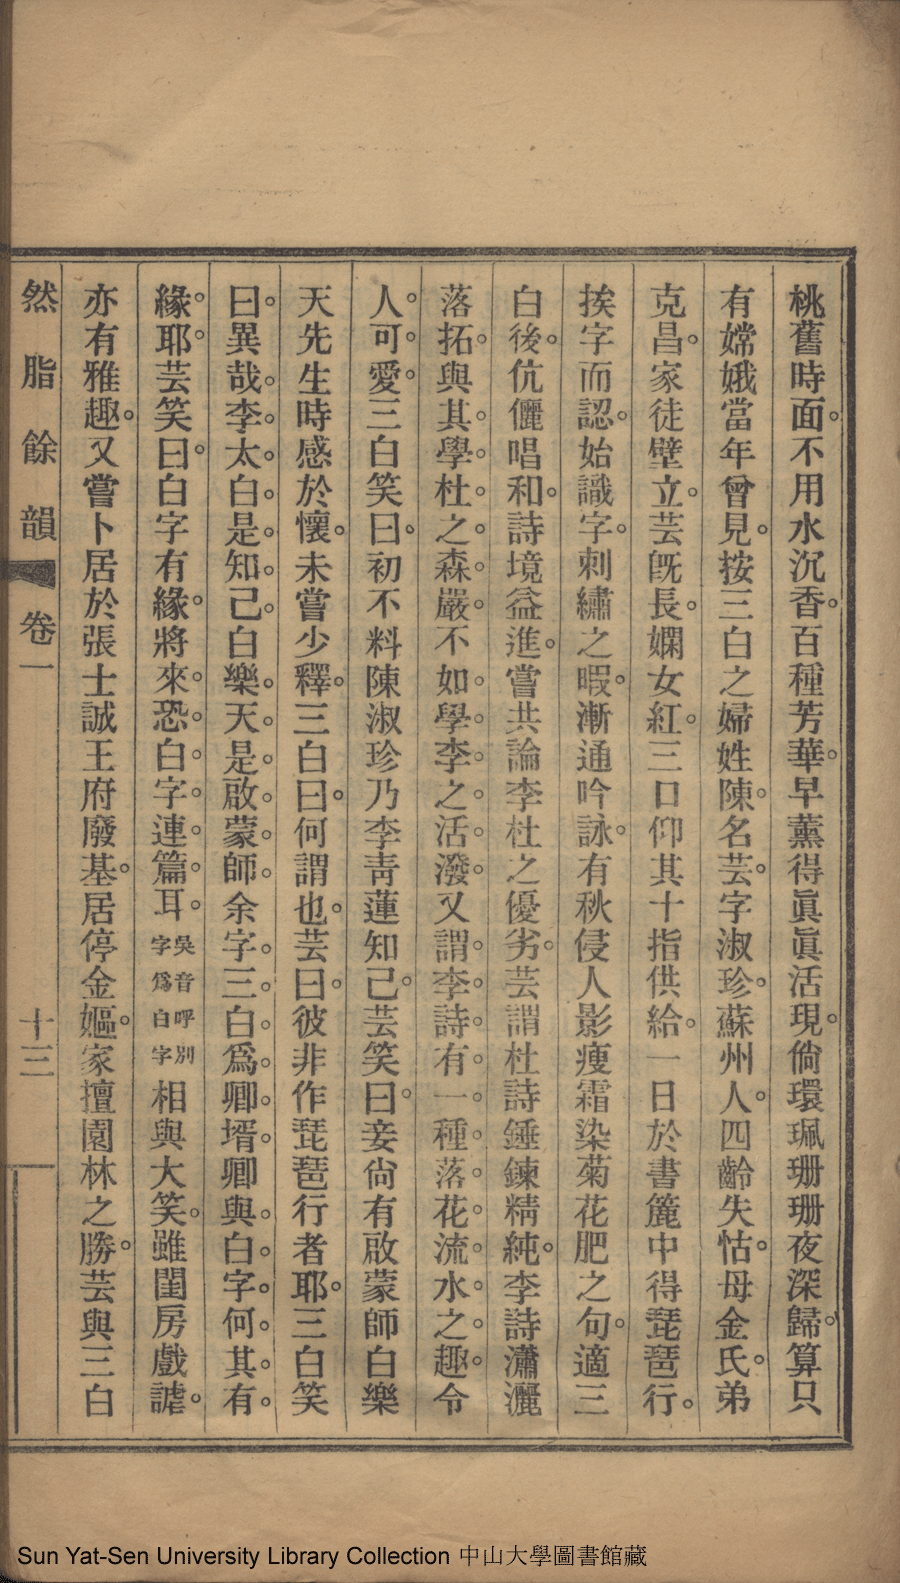 桃舊時面。不用水沉香。百種芳華。早薰得眞眞活現。倘環珮珊珊夜深歸。算只
有嫦娥當年曾見。按三白之婦姓陳。名芸。字淑珍。蘇州人。四齡失怙。母金氏。弟
克昌。家徒壁立。芸旣長。嫻女紅。三口仰其十指供給。一日於書簏中得琵琶行。
挨字而認。始識字。刺繡之暇。漸通吟詠。有秋侵人影瘦霜染菊花肥之句。適三
白後。伉儷唱和。詩境益進。嘗共論李杜之優劣。芸謂杜詩錘鍊精純。李詩瀟灑
落拓。與其。學。杜。之。森。嚴。不如。學。李。之。活。潑。又謂。李。詩。有。一。種。落。花。流。水。之。趣。令
人。可。愛。三白笑曰。初不料陳淑珍乃李靑蓮知己。芸笑曰。妾尙有啟蒙師白樂
天先生時感於懷。未嘗少釋。三白曰。何謂也。芸曰。彼非作琵琶行者耶。三白笑
曰。異哉。李。太。白。是。知。己。白樂。天。是。啟。蒙。師。余字。三。白。爲。卿。壻。卿與。白。字。何。其。有。
緣。耶。芸笑曰。白字有緣。將來。恐。白。字。連。篇。耳。吳音呼別字爲白字相與大笑。雖閨房戲謔。
亦有雅趣。又嘗卜居於張士誠王府廢基。居停金嫗。家擅園林之勝。芸與三白
然脂餘韻 卷一 十三
Sun Yat-Sen University Library Collection 中山大學圖書館藏